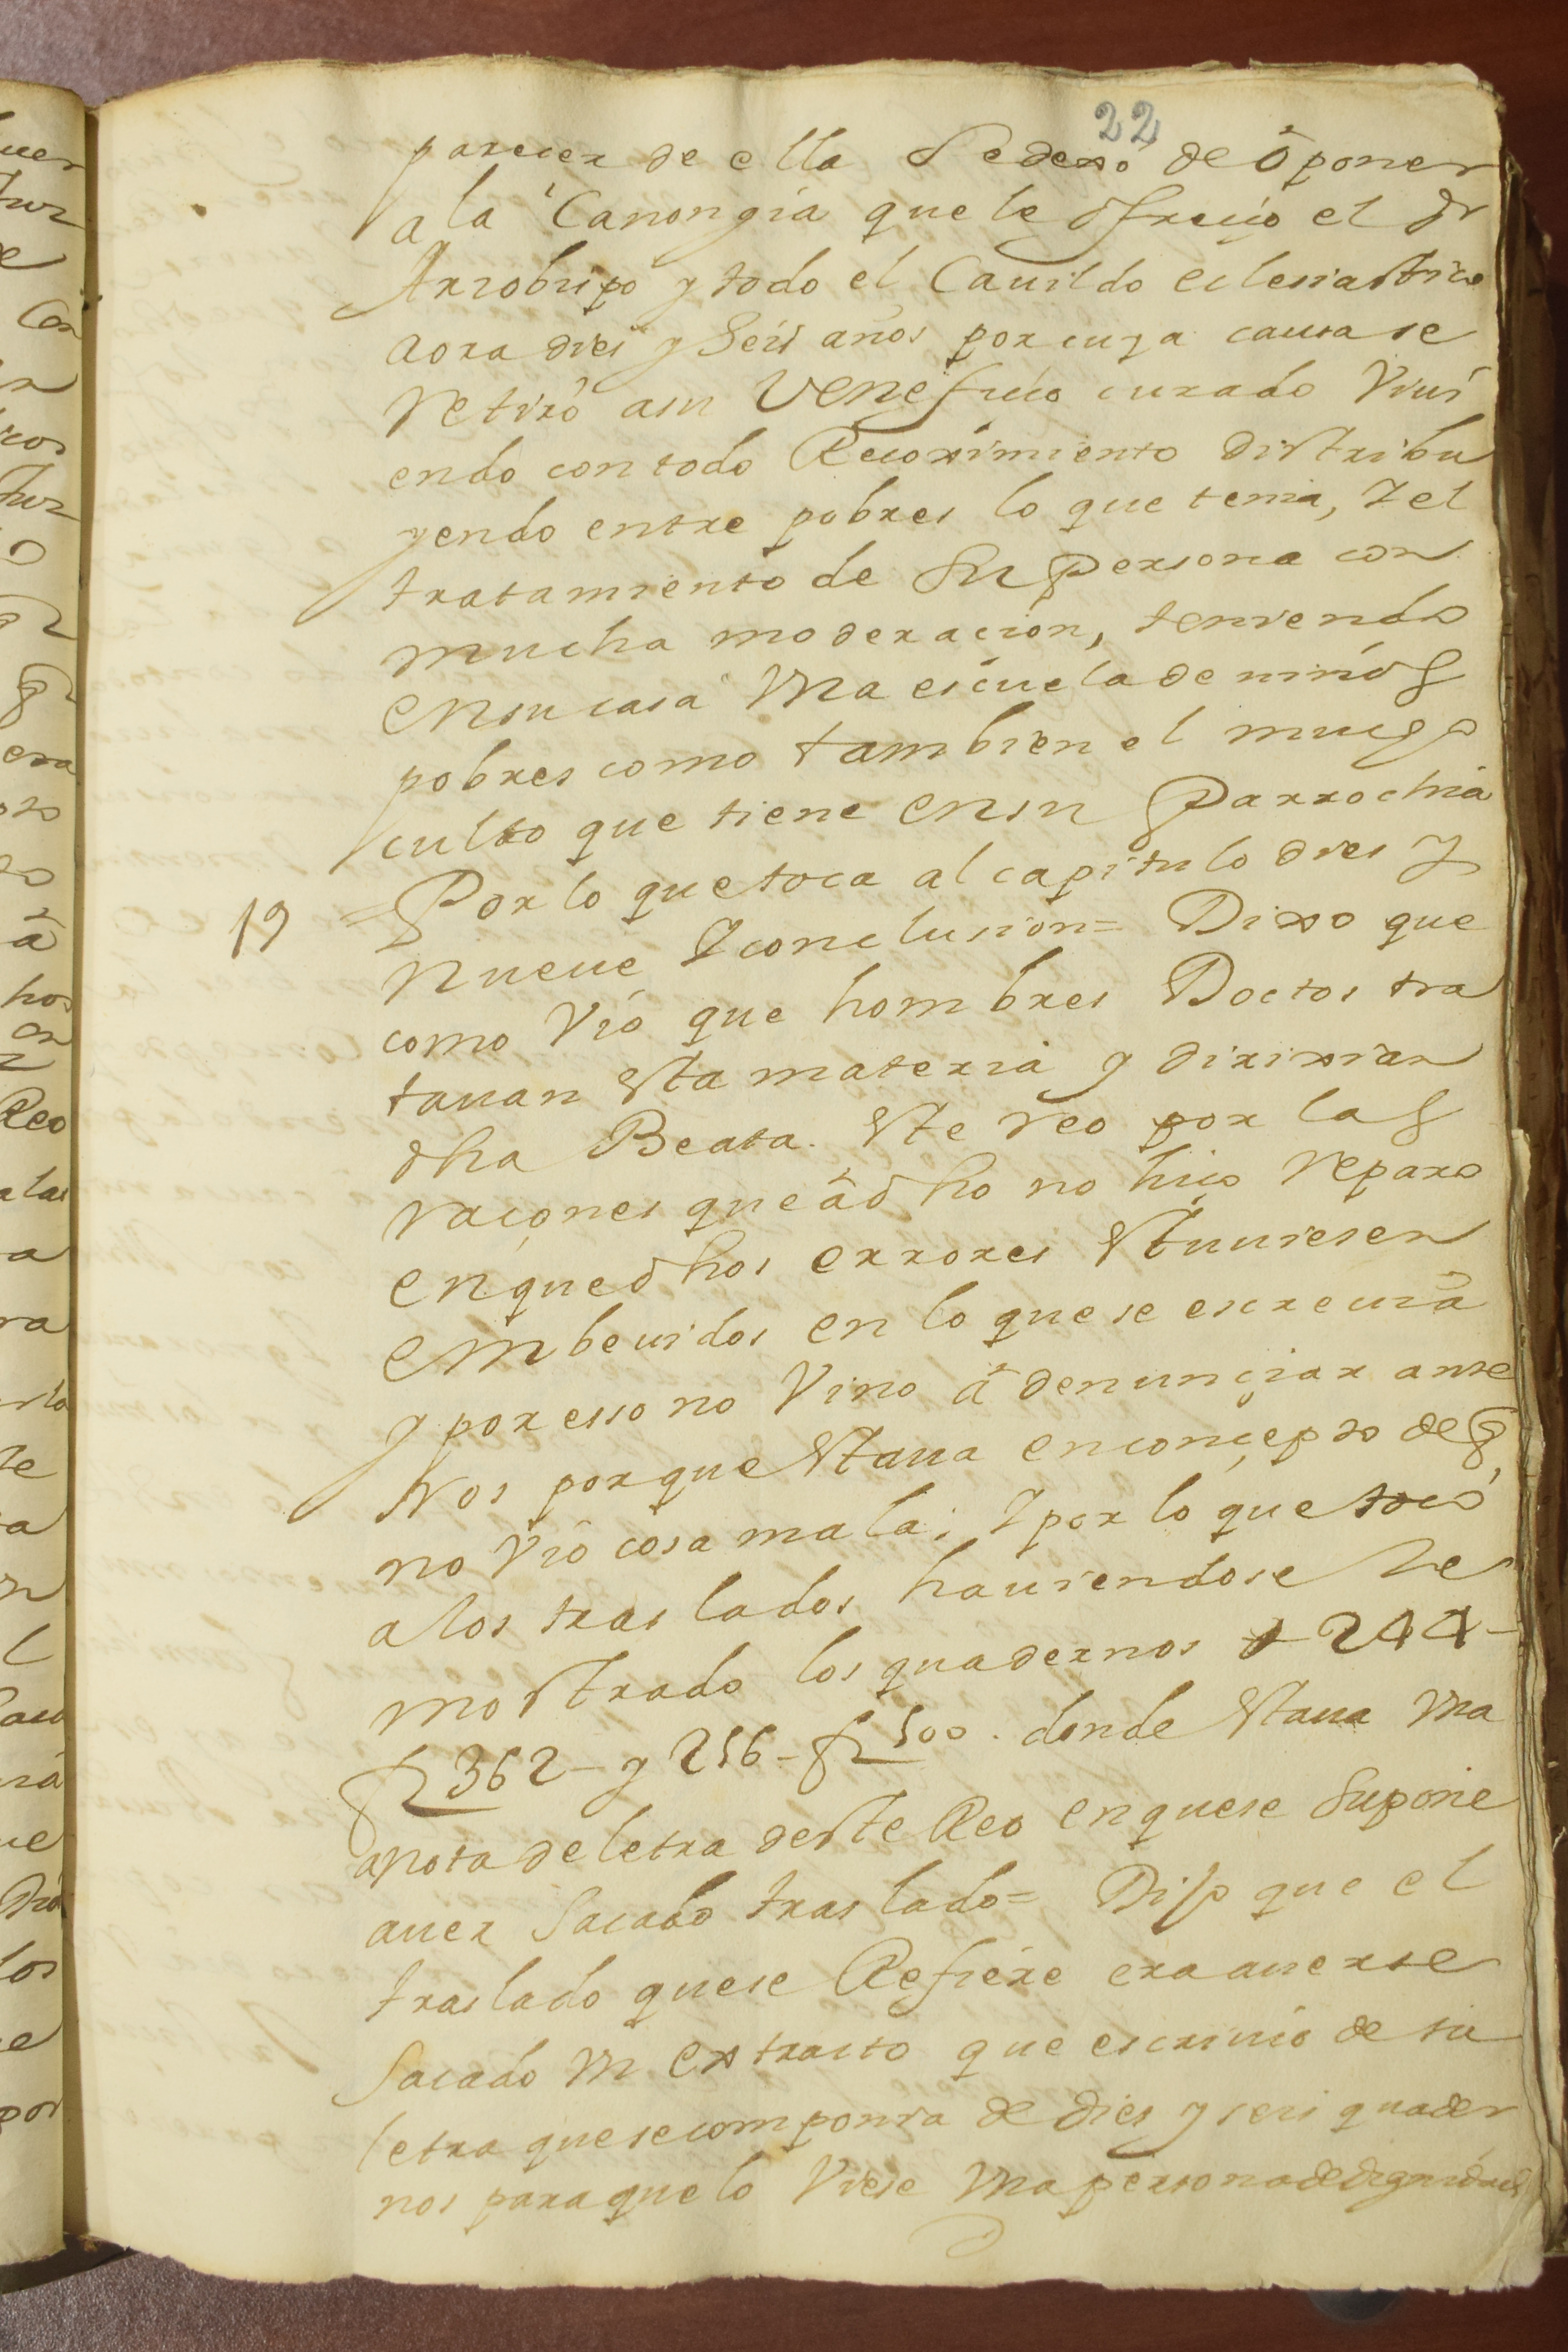 22
parecer de ella Se dexó de oponer
a la Canongia que le ofreçio el Sr
Arzobispo y todo el Cauildo eclesiastico
aora dies y Seis años por cuya causa se
retiró a su Veneficio curado viui
endo con todo Recoximiento distribu
yendo entre pobres lo que tenia, Y el
tratamiento de Su Persona con
mucha moderacion, teniendo
en su casa vna escuela de niños
pobres como tambien el mucho
culto que tiene en su Parrochia
19 = Por lo que toca al capitulo dies y
nueue Y conclusion = Dixo que
como Vió que hombres Doctos tra
tauan esta materia y dirixian
dha Beata. este reo por las
raçones que a dho no hiço reparo
en que dhos errores estuuiesen
embeuidos en lo que se escreuia
y por esso no Vino a denunçiar ante
Nos porque estaua en conçepto de q
no Vió cosa mala; Y por lo que tocó
a los traslados hauiendose le
mostrado los quadernos 244 -
fs 362 - y 256 - fs 500. donde estaua vna
anota de letra deste Reo en que se Supone
auer Sacado traslado = Dijo que el
traslado que se Refiere era auerse
Sacado vn extracto que escriuió de su
letra que se componia de dies y seis quader
nos para que lo Viese vna persona de dignidad